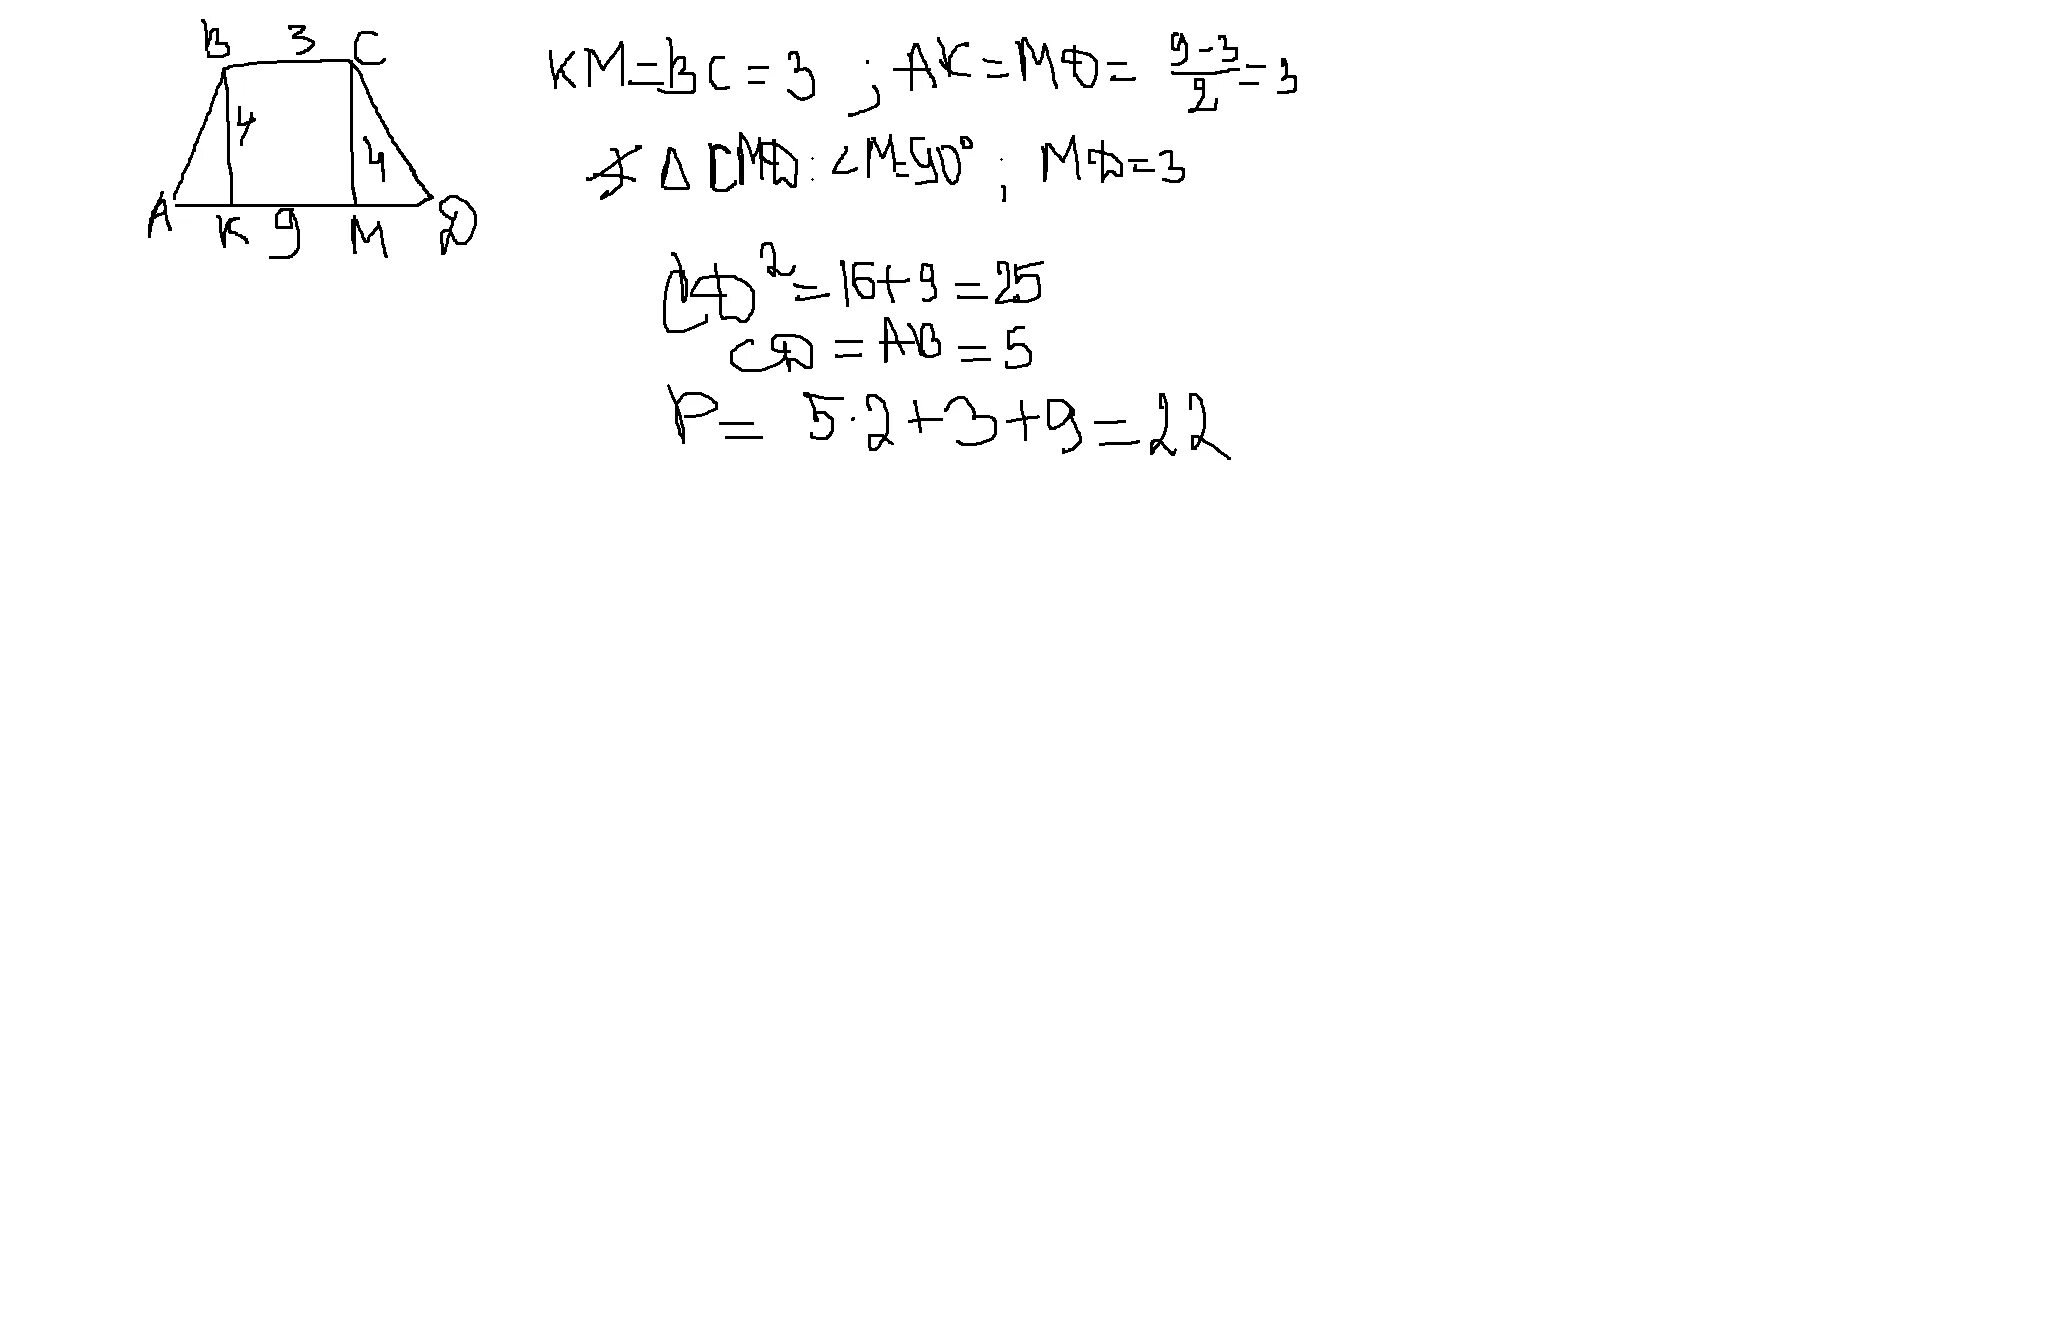 B 3 C
4
4
A K 9 M D
KM=BC=3 ; AK=MD= 9-3/2=3
Δ CMD: ∠M=90°; MD=3
CD²=16+9=25
CD=AB=5
P= 5·2+3+9=22